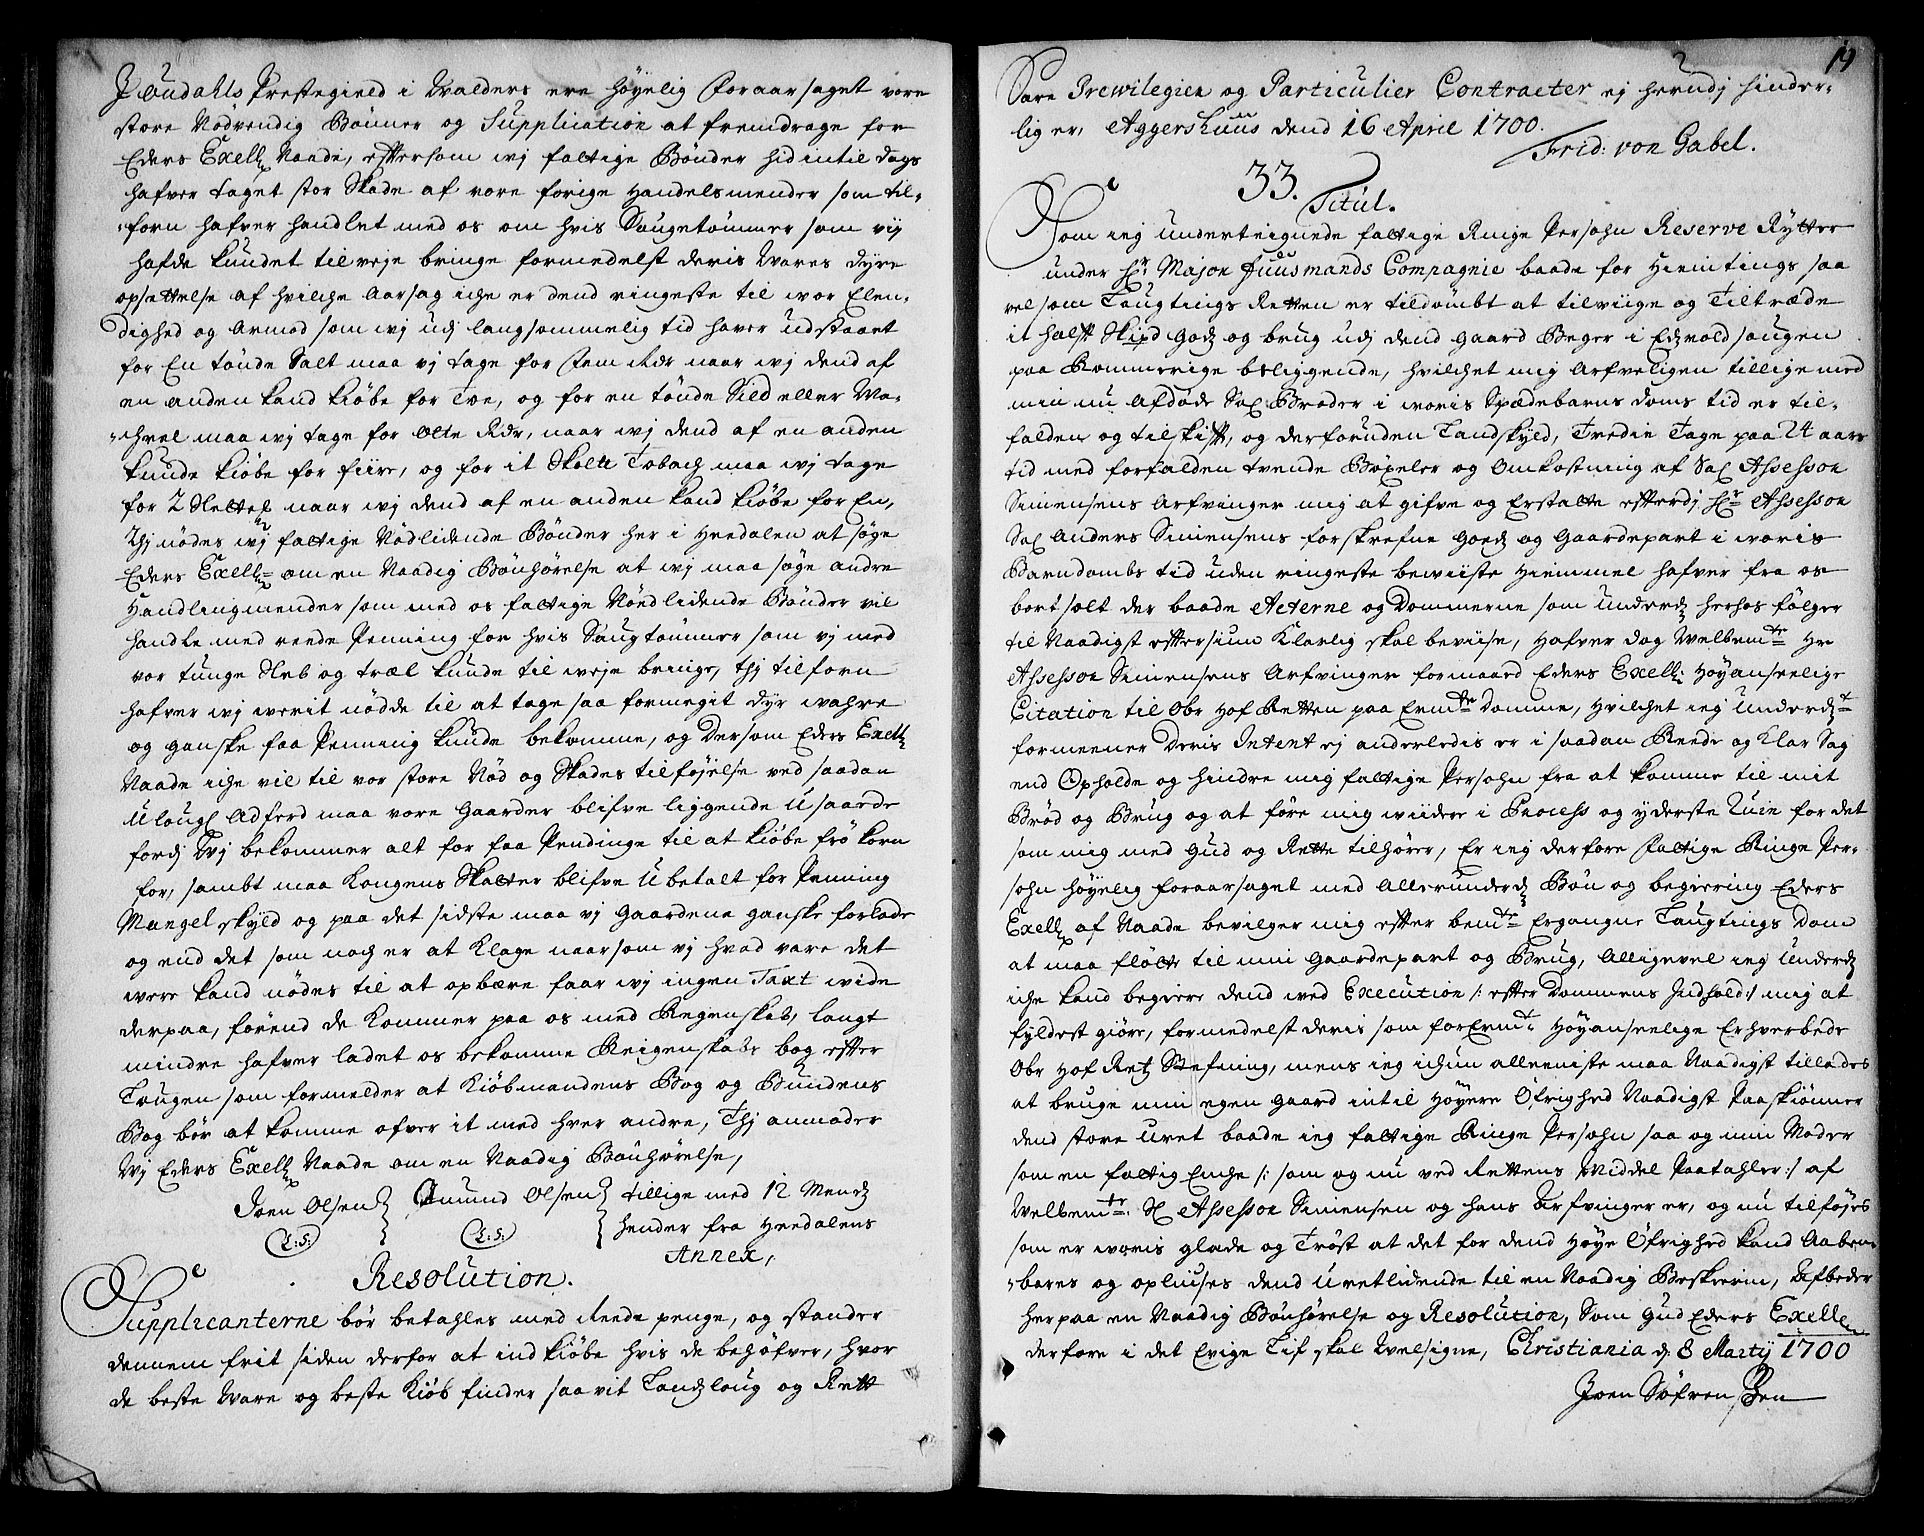 J Ourdahls Prestegield i Walders ere höyelig foraarsaget vore
store Nödvendig Bönner og Supplication at fremdrage for
Eders Excell Naade, eftersom wj fattige Bönder hid intil dags
hafver taget stor Skade af vore forige Handelsmender som til-
forn hafver handlet med os om hvis Saugetömmer som vij
hafde kundet tilveje bringe formedelst deris Wares dyre
opsettelse af hvilche Aarsag iche er dend ringeste til wor Elen-
dighed og Armod som wj udj langsommelig tid haver udstaaet
for En tönde Salt maa vj tage for fem rdr naar wj dend af
en anden kand kiöbe for Toe, og for en tönde Sild eller Ma-
chrel maa wj tage for Otte Rdr, naar wj dend af en anden
kunde kiöbe for fiire, og for it Skotte Tobach maa wj tage
for 2 naar wj dend af en anden kand kiöbe for En,
Thj nödes wj fattige Nödlidende Bönder her i Hedalen at söge
Eders Excell om en Naadig Bönhörelse at wj maa söge andre
Handlingmender som med os fattige Nöedlidende Bönder vil
handle med reede Penning for hvis Saugtömmer som vj med
vor tunge Sleb og træl kunde til weje bringe, thj tilforn
hafver wj werit nödde til at tage saa formegit dyr wahre
og ganske faa Penning kunde bekomme, og dersom Eders Excell
Naade iche vil til vor store Nöd og Skades tilföjelse ved saadan
Ulougl Adferd maa vore Gaarder blifve liggende Usaaede
fordj Wj bekommer alt for faa Pendinge til at kiöbe frö korn
for, sambt maa Kongens Skatter blifve Ubetalt for Penning
Mangel skyld og paa det sidste maa vj Gaardene ganske forlade
og end det som noch er at klage naarsom vj hvad vare det
were kand nödes til at opbære faar wj ingen Taxt wide
derpaa, förend de kommer paa os med Regenskab, langt
mindre hafver ladet os bekomme Reigenskabs bog efter
Lougen som formelder at Kiöbmandens Bog og Bundens
Bog bör at komme ofver it med hver andre, Thj anmoder
Wj Eders Excell Naade om en Naadig Bönhörelse,
Joen Olsen Amund Olsen tillige med 12 Mends
(L:S:) (L:S:) hender fra Hedalens
Annex,
Resolution.
Supplicanterne bör betahles med Reede penge, og stander
dennem frit siden derfor at indkiöbe hvis de behöfver, hvor
de beste Ware og beste Kiöb finder saa vit Landsloug og Rett
19
Sare Prewilegier og Particulier Contracter ej herudj hinder-
lig er, Aggershuus dend 16 April 1700.
Frid: von Gabel.
33.
Titul.
Som ieg underteignede fattige Ringe Persohn Reserve Rytter
under Hr Major Juusmands Compagnie baade for Hiemtings saa
vel som Laugtings Retten er tildömbt at tilviige og Tiltræde
it halft Skipd Gods og brug udj dend Gaard Beger i Edsvold sougen
paa Rommerige beliggende, hvilchet mig Arfveligen tillige med
min nu afdöde Sal Broder i woris Spædebarns doms tid er til-
falden og tilskift, og derforuden Landskyld, Tredie Tage paa 24 aars
tid med forfalden tvende Böxeler og Omkostning af Sal Assessor
Simensens Arfvinger mig at gifve og Erstatte efterdj Hr Assessor
Sal Anders Simensens forskrefne Goeds og Gaardepart i woris
Barndombs tid uden ringeste bewiiste Hiemmel hafver fra os
bort solt der baade Acterne og Dommerne som underd herhos fölger
til Naadigst eftersiun Klarlig skal beviise, Hafver dog Welbemte Hr
Assessor Simensens Arfvinger formaaed Eders Excell: Höyanseelige
Citation til Obr Hof Retten paa Ermte Domme, hvilchet ieg underd
formeener Deris Intent ej anderledis er i saadan Reede og klar Sag
end Opholde og hindre mig fattige Persohn fra at komme til mit
Bröd og Brug og at före mig wiidere i Process og yderste Ruin for det
som mig med Gud og Rette tilhörer, Er ieg derfore fattige Ringe Per-
sohn höyelig foraarsaget med Allerunderd Bön og begiering Eders
Excell af Naade bevilger mig efter bemte Ergangne Laugtings Dom
at maa flötte til min Gaardepart og Brug, Alligevel ieg underd
iche kand begiere dend ved Execution /: efter Dommens Indhold :/ mig at
fyldest giöre, formedelst deris som forErmte Höyanseelige Erhverbede
Obr Hof Rets Stefning, mens ieg ichun alleeniste maa Naadigst tillades
at bruge min egen Gaard intil höyere Öfrighed Naadigst Paaskiönner
dend store uret baade ieg fattige Ringe Persohn saa og min Moder
som en fattig Enche /: som og nu ved Rettens Middel Paatahler :/ af
Welbemte: Sl Assessor Simensen og hans Arfvinger er, og nu tilföjes
som er woris glæde og Tröst at det for dend Höye Öfrighed kand Aaben-
bares og opliuses dend Uretlidende til en Naadig Beskierm, Afbeder
herpaa en Naadig Bönhörelse og Resolution, Som Gud Eders Excell
derfore i det Evige Lif skal Welsigne, Christiania d: 8 Martij 1700
Joen Söfrensen